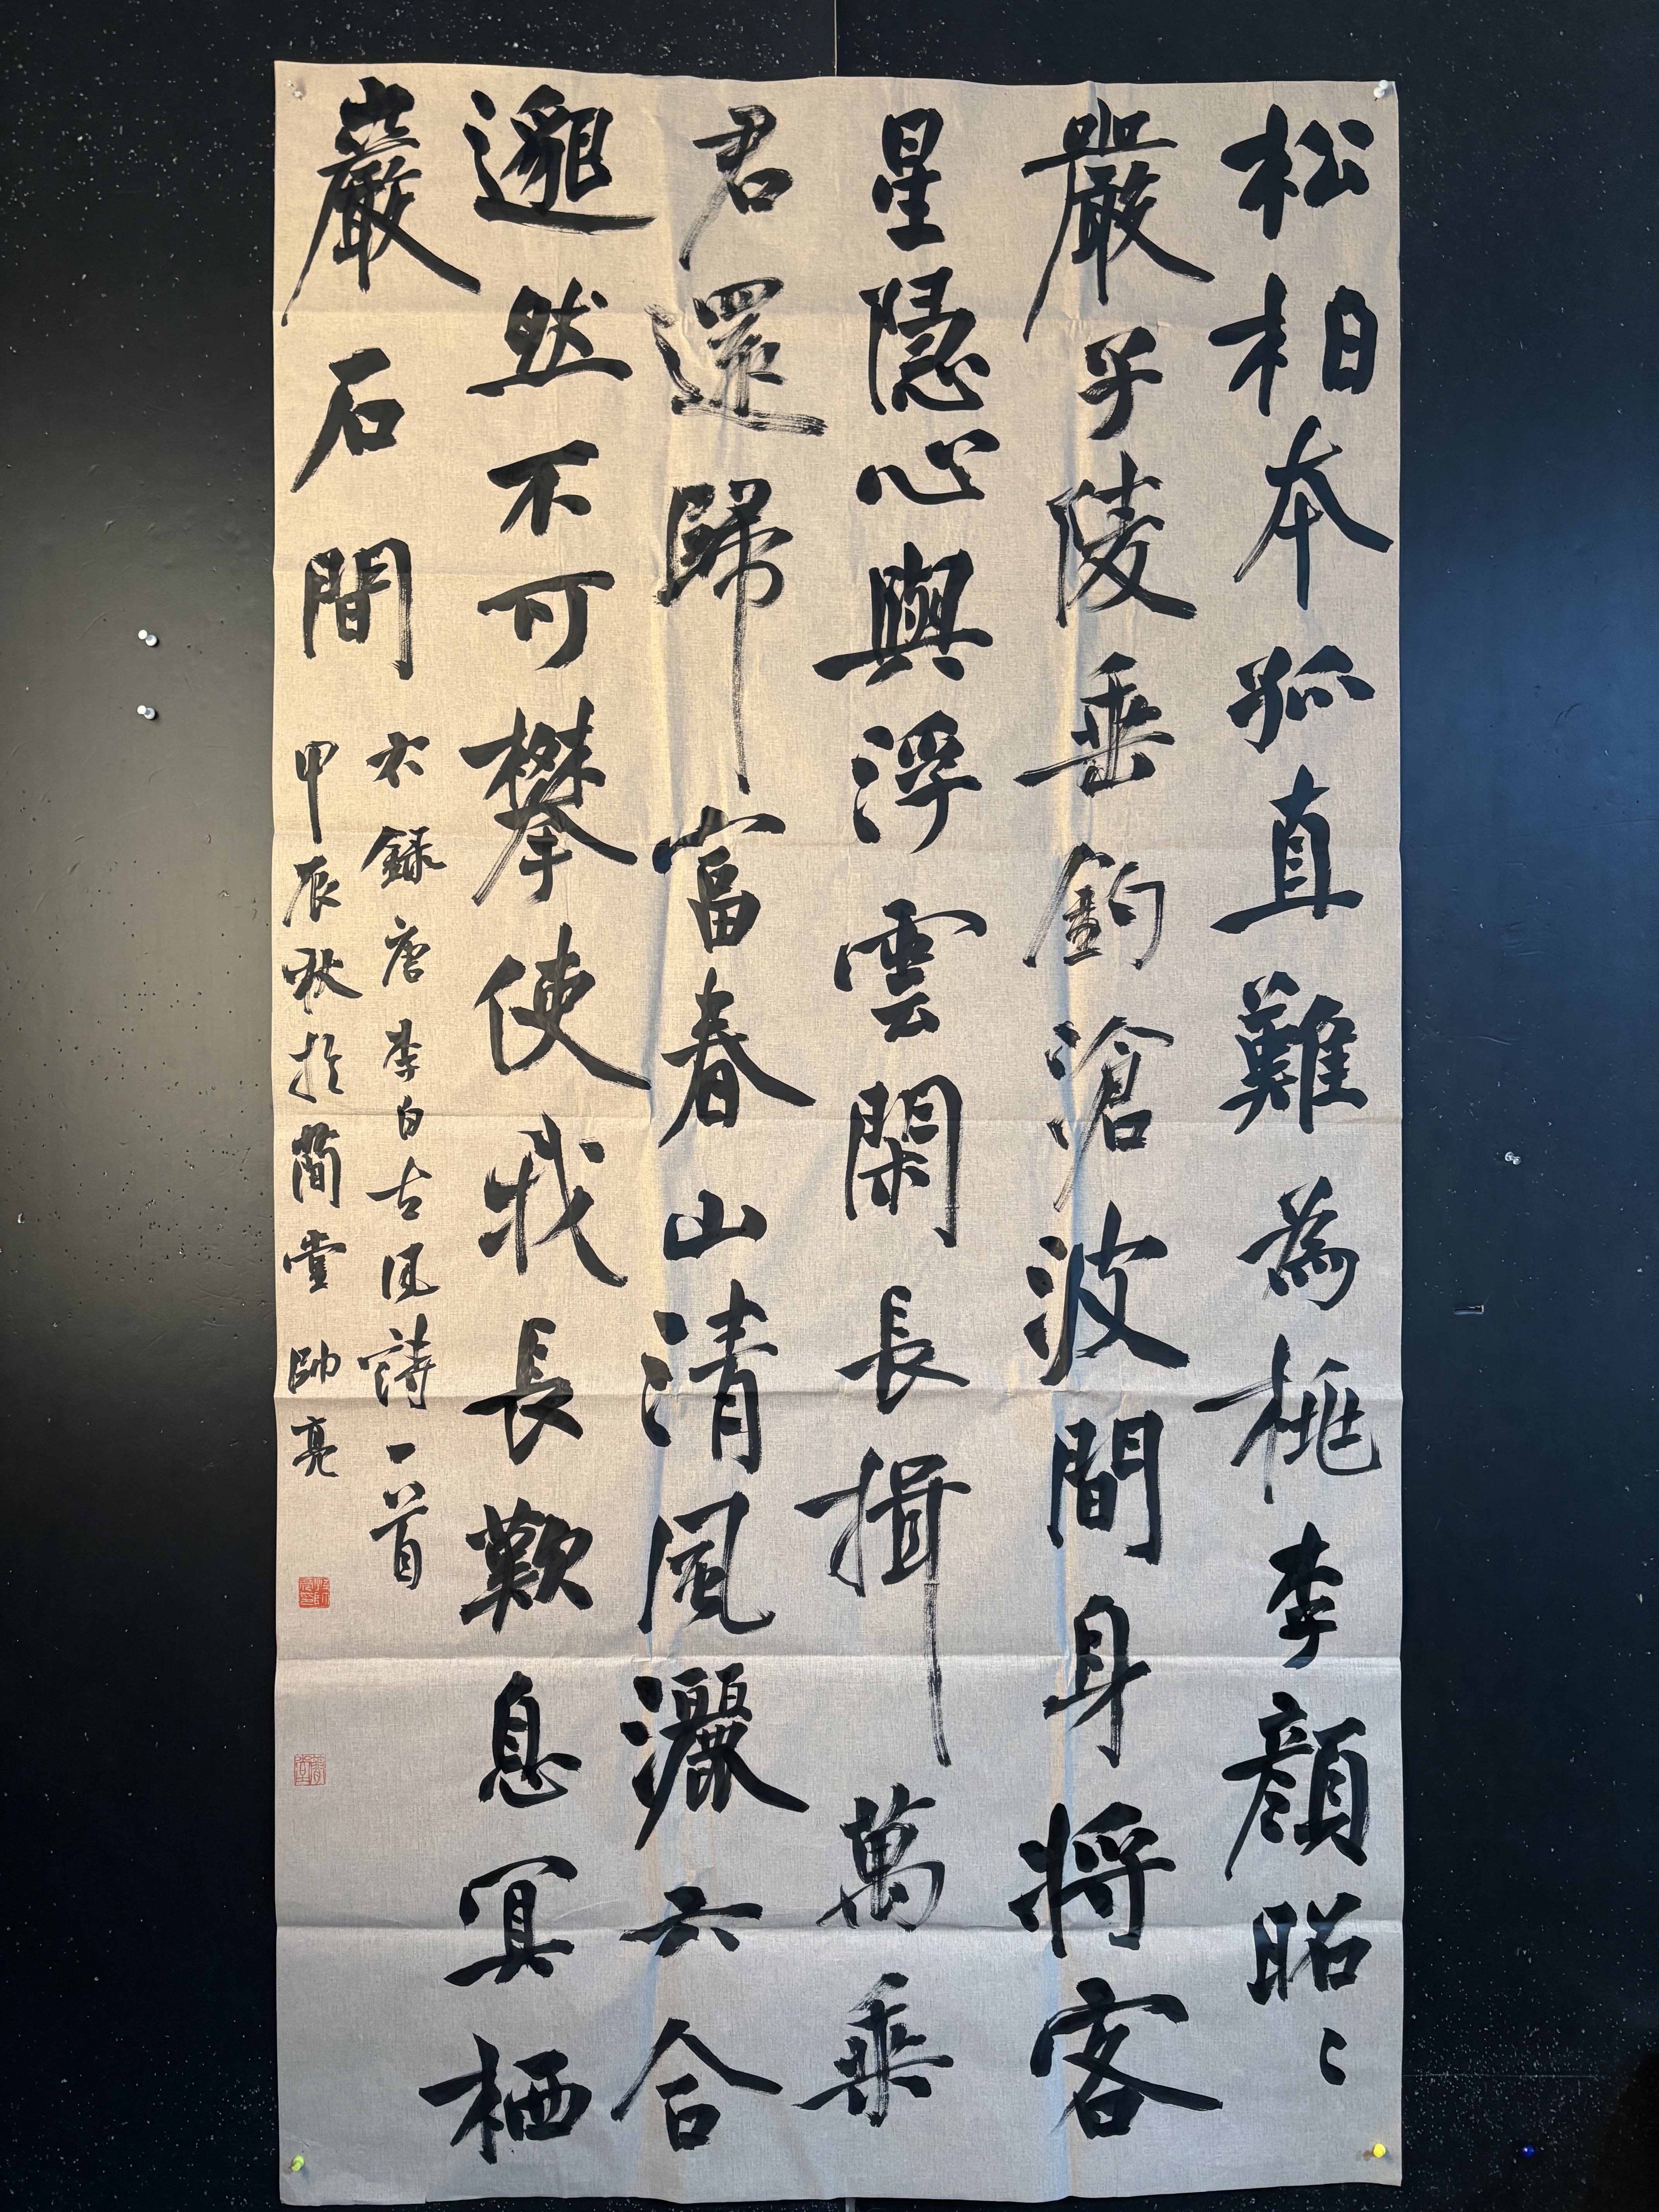 松柏本孤直難為桃李顔昭〻
嚴子陵垂釣滄波間身將客
星隱心與浮雲閑長揖萬乘
君還歸富春山清風灑六合
邈然不可攀使我長歎息冥栖
巖石間
右録唐李白古風詩一首
甲辰秋於簡堂帥亮